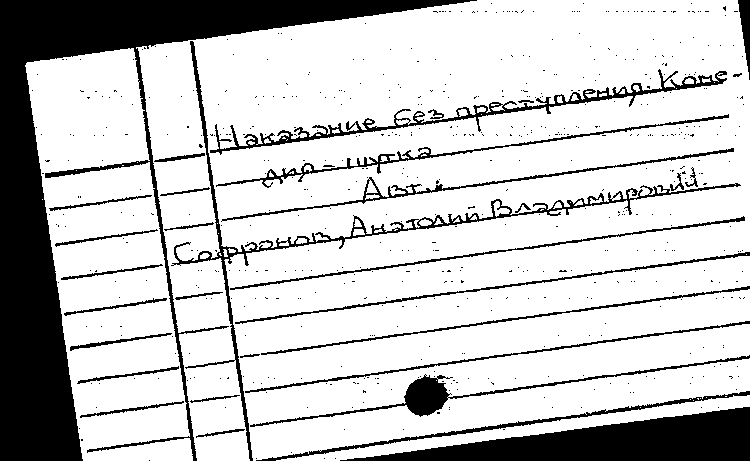 Наказание без преступления. Коме-
дия-шутка
Авт.:
Софронов, Анатолий Владимирович.